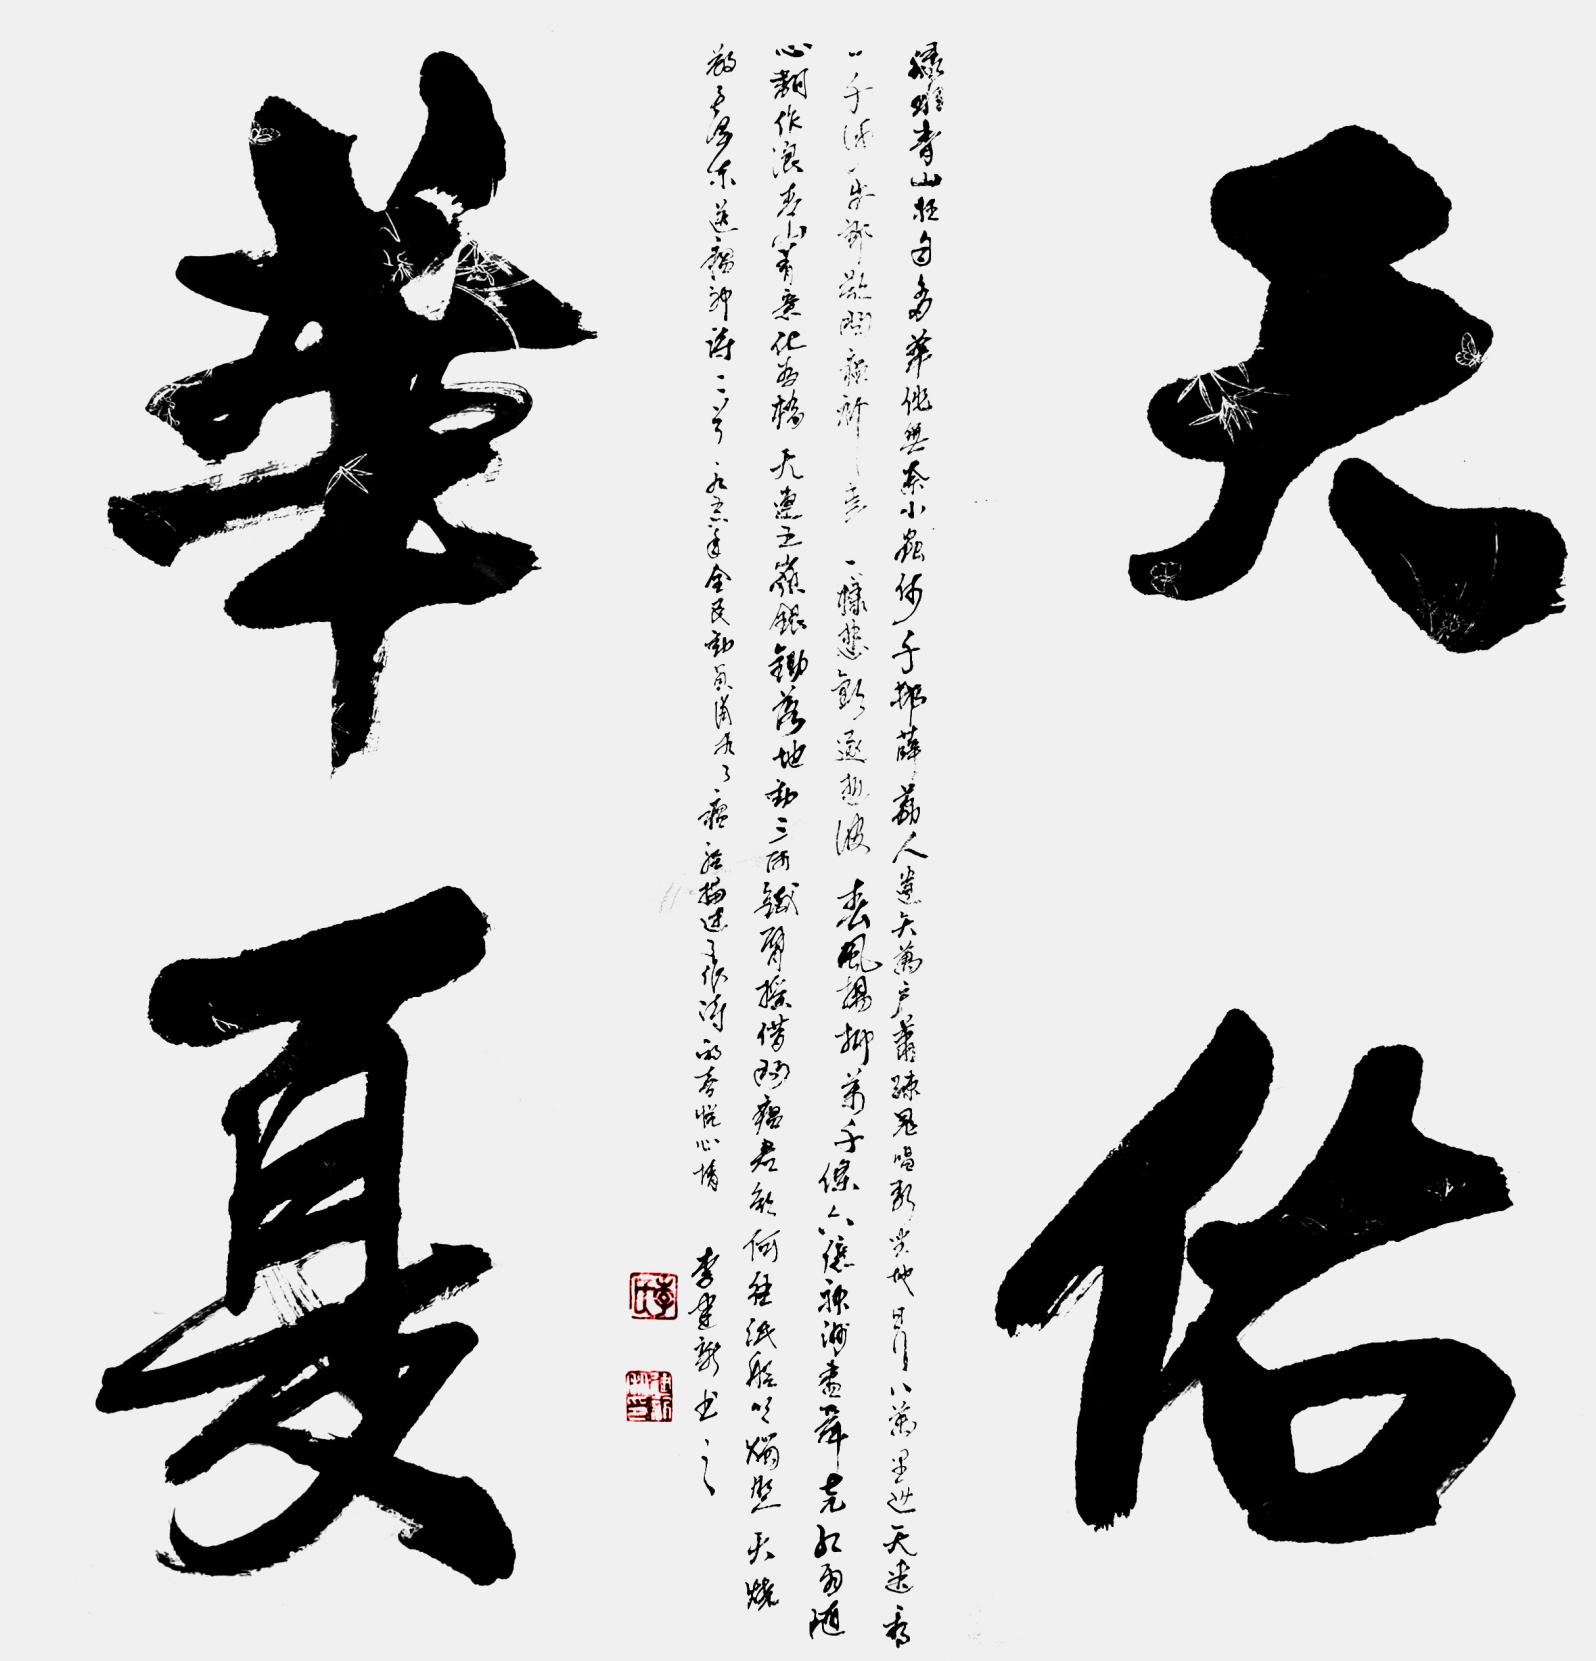 天佑
綠青山枉自多華佗無奈小蟲何千邨薜荔人遺矢萬戶蕭疎鬼唱歌坐地日行八萬里巡天遙看
一千河牛郎欲問瘟神事一樣悲歡逐逝波春風楊柳萬千條六億神州盡舜堯紅雨隨
心翻作浪青山着意化為橋天連五嶺銀鋤落地動三河鐵臂搖借問瘟君欲何往紙船明燭照天燒
毛澤東送瘟神詩二首一九五八年全民動員消滅了瘟疫描述了作詩的喜悅心情李建新书之
華夏